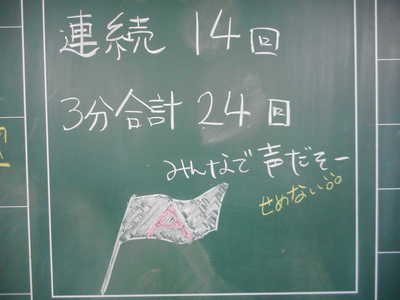 連続 14回
3分合計 24回
みんなで声だそー
せめない
A